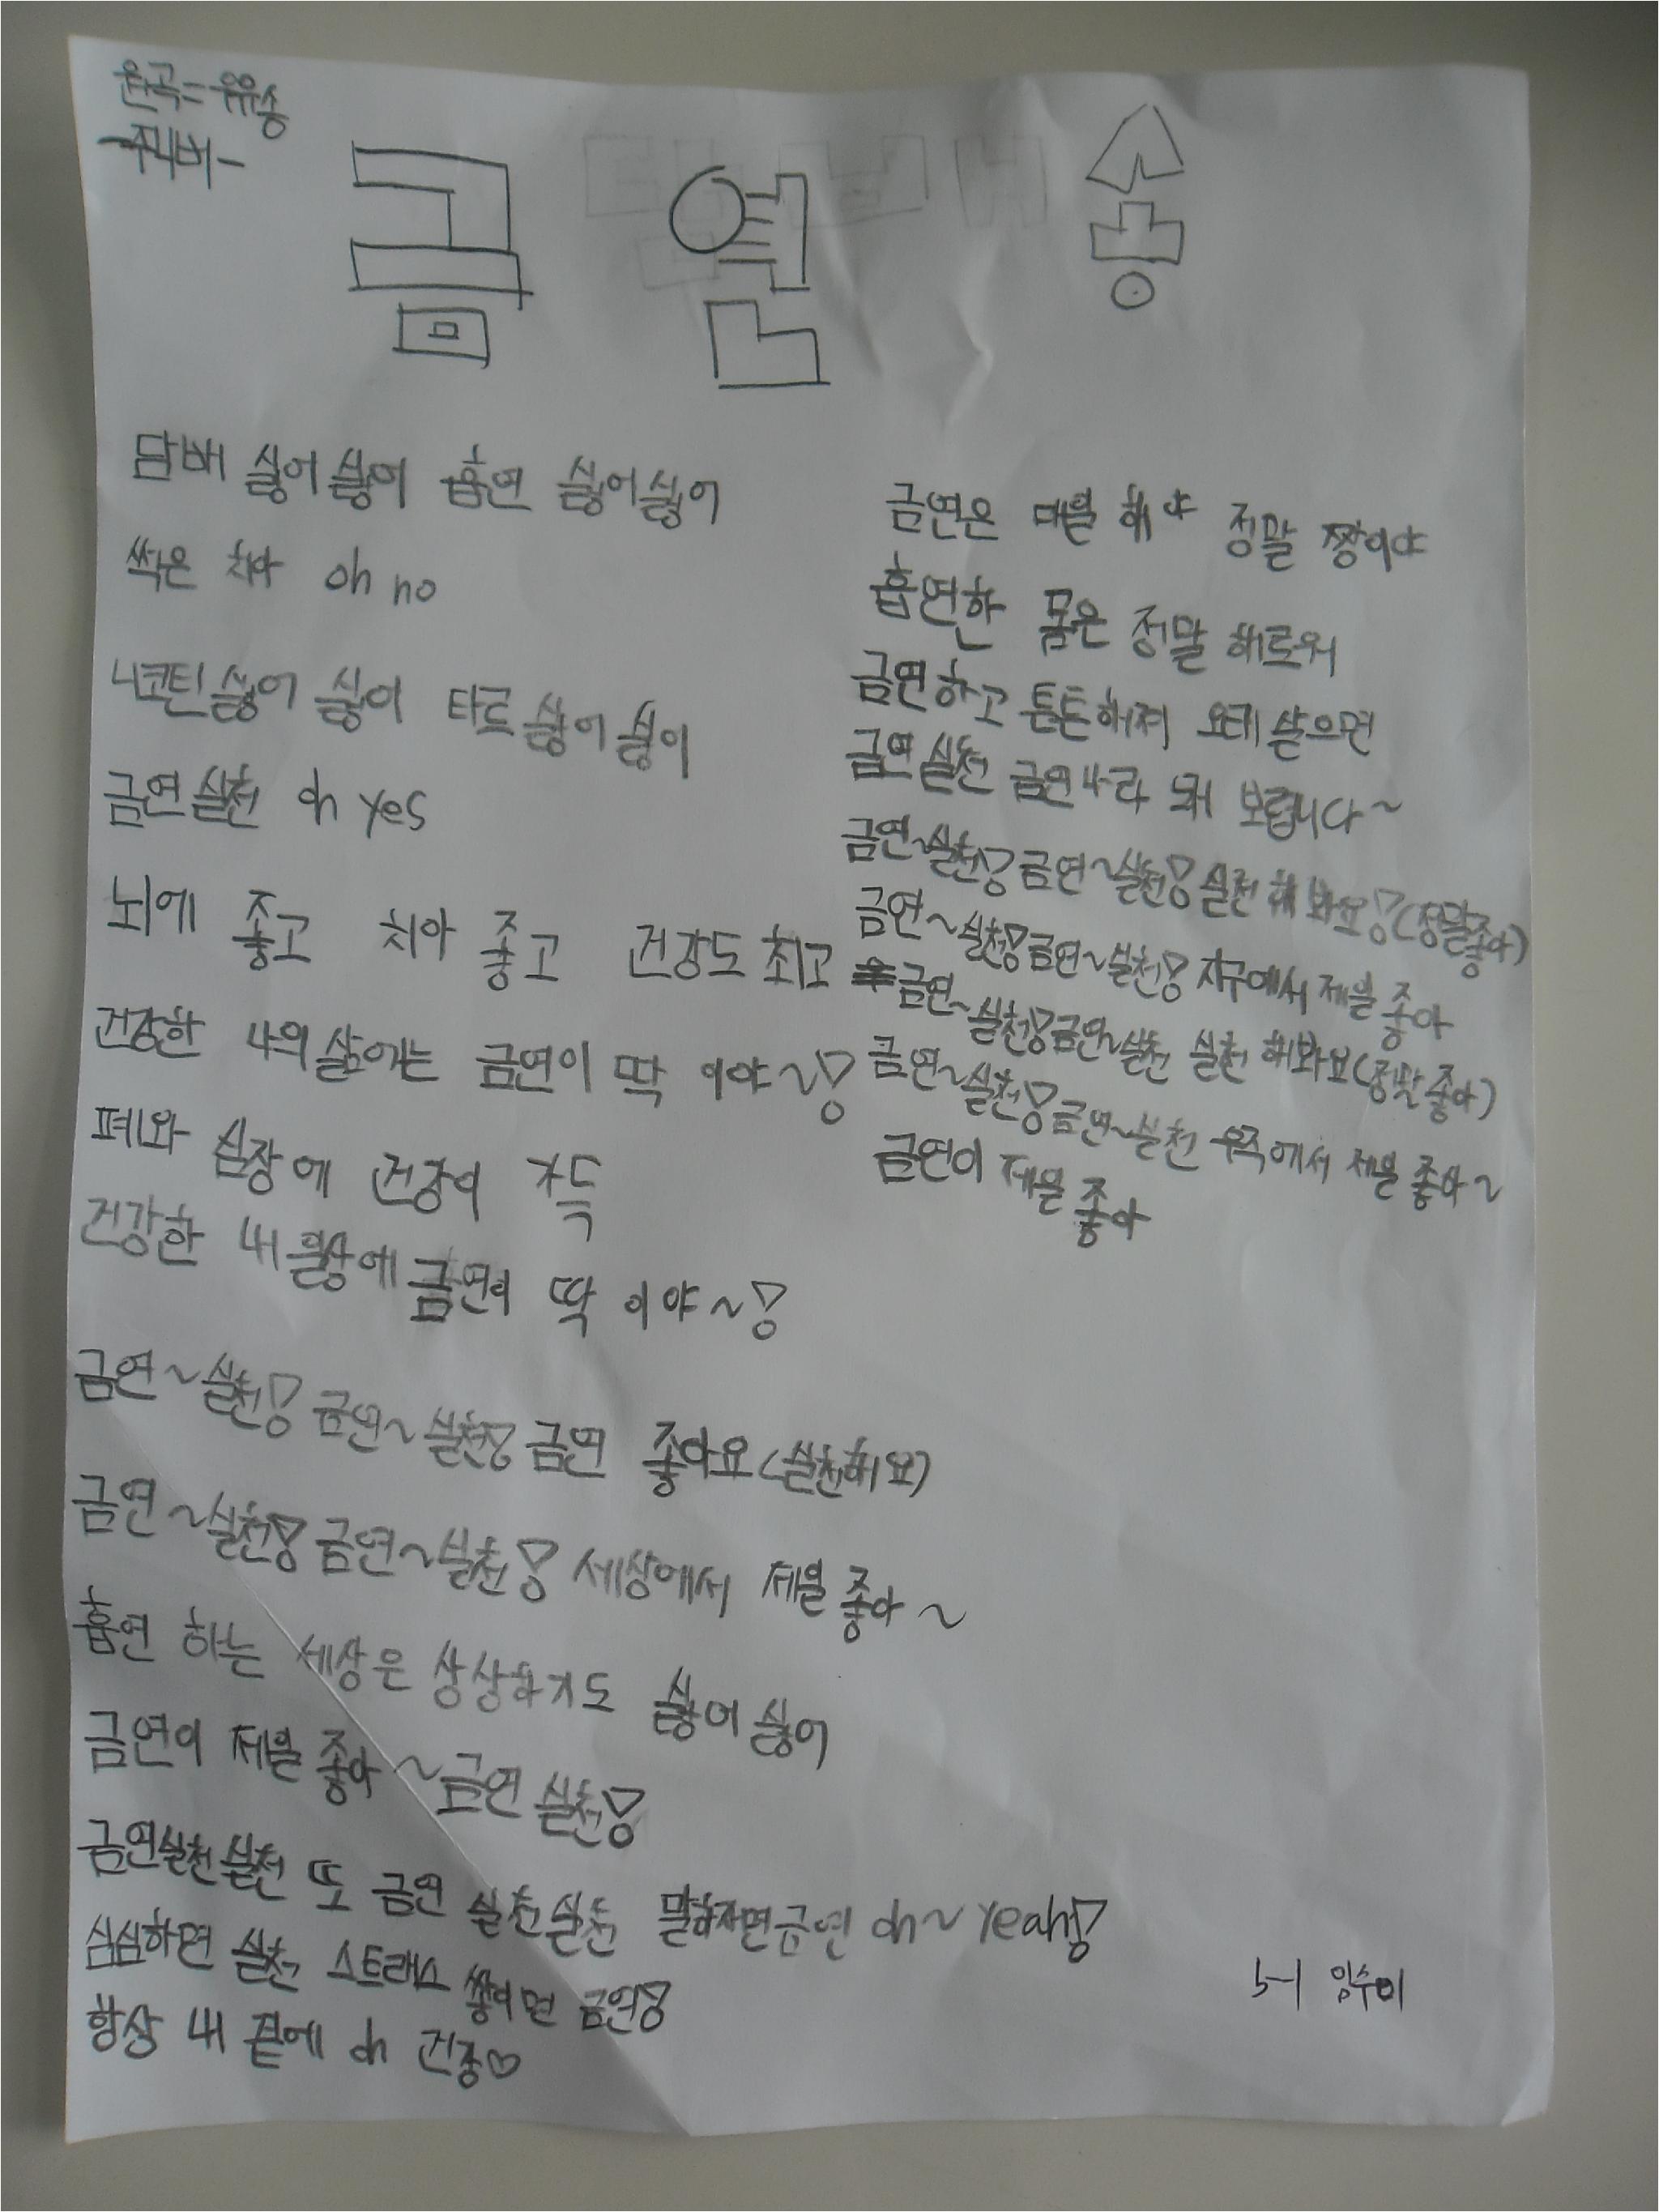 원곡=우유송
-주니비-
금연송
담배 싫어싫어 흡연 싫어싫어
썩은 치아 oh no
니코틴싫어 싫어 타르싫어싫어
금연실천 oh yes
뇌에 좋고 치아 좋고 건강도 최고
건강한 나의 삶에는 금연이 딱 이야~!
폐와 심장에 건강이 가득
건강한 내 일상에 금연이 딱 이야~!
금연~실천! 금연~실천! 금연 좋아요(실천해요)
금연~실천! 금연~실천! 세상에서 제일 좋아~
흡연 하는 세상은 상상하기도 싫어싫어
금연이 제일 좋아~금연 실천!
금연실천실천 또 금연 실천실천 말하자면금연 oh~yeah!
심심하면 실천 스트레스 쌓이면 금연!
항상 내 곁에 oh 건강♡
금연은 매일 해야 정말 짱이야
흡연한 몸은 정말 해로워
금연하고 튼튼해져 오래살으면
금연실천 금연나라 돼 보렵니다~
금연~실천! 금연~실천! 실천 해봐요!(정말좋아)
금연~실천! 금연~실천! 지구에서 제일 좋아
금연~실천! 금연~실천 실천 해봐요(정말좋아)
금연~실천! 금연~실천 우주에서 제일 좋아~
금연이 제일 좋아
5-1 임수이